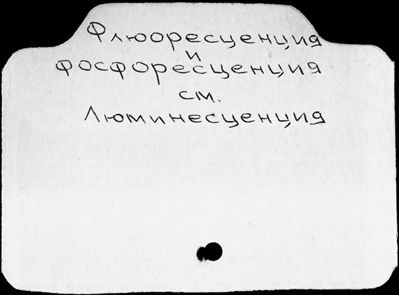 Флюоресценция
и
фосфоресценция
см.
Люминесценция